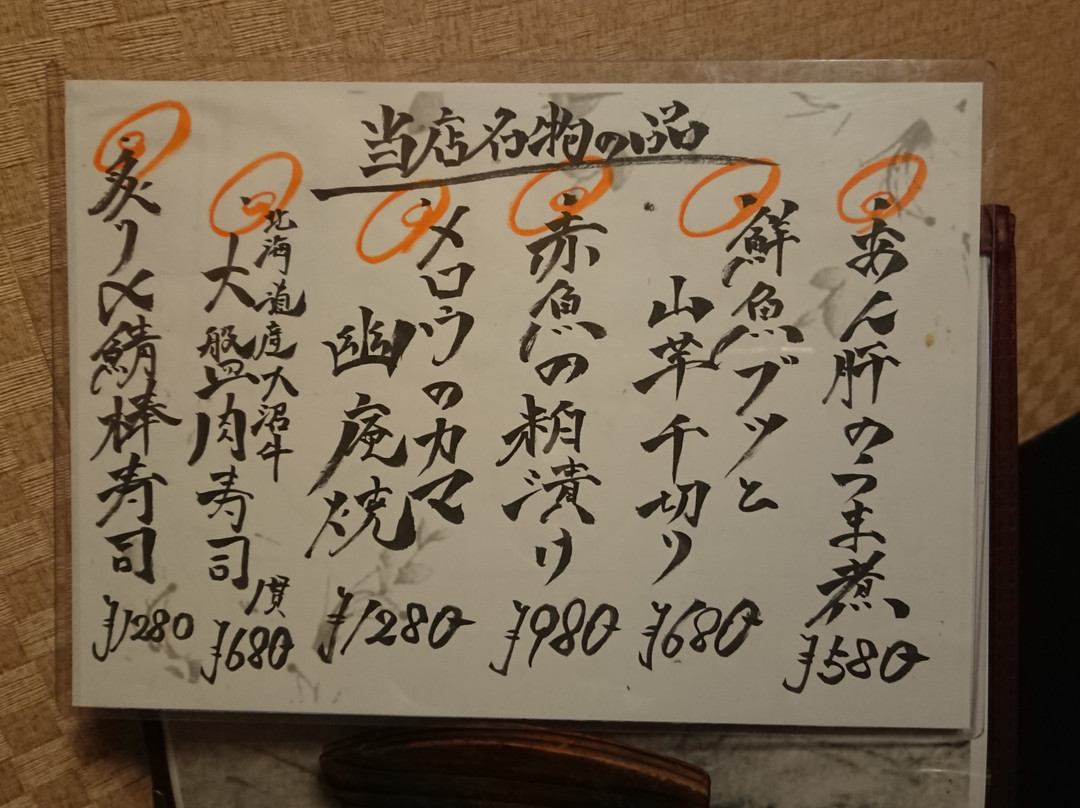 当店名物の品
あん肝のうま煮
¥580
鮮魚ブツと
山芋千切り
¥680
赤魚の粕漬け
¥980
メロウのカマ
幽庵焼
¥1280
北海道産大沼牛
大盤肉寿司
1貫
¥680
炙り〆鯖棒寿司
¥1280